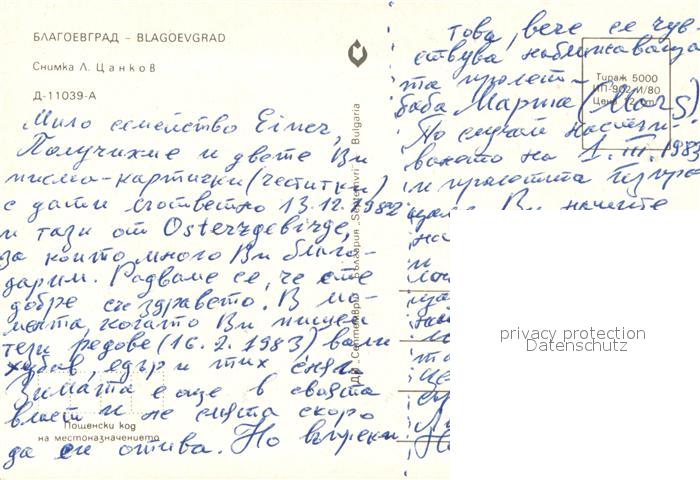 БЛАГОЕВГРАД – BLAGOEVGRAD
Снимка Л. Цанков
Д-11039-А
Мило семейство Einer,
Получихме и двете Ви
писма-картички (честитки)
с дати съответно 13.12.1982
и тази от Osterzgebirge,
за които много Ви благо-
дарим. Радваме се, че сте
добре със здравето. В мо-
мента, когато Ви пишем
тези редове (16.2.1983) вали
хубав, едър и тих сняг.
Зимата е още в своята
власт и не смята скоро
да си отива. Но въпреки
Пощенски код
на местоназначението
ДП „Септември" България „Septemvri" Bulgaria
това, вече се чув-
ствува наближаваща
та пролет –
баба Марта (Mars)
По случай настъпи-
ването на 1.III.1983
и пролетта
Ви нашите
на
и
Тираж 5000
ИП-902-И/80
Цена 2 ст.
privacy protection
Datenschutz